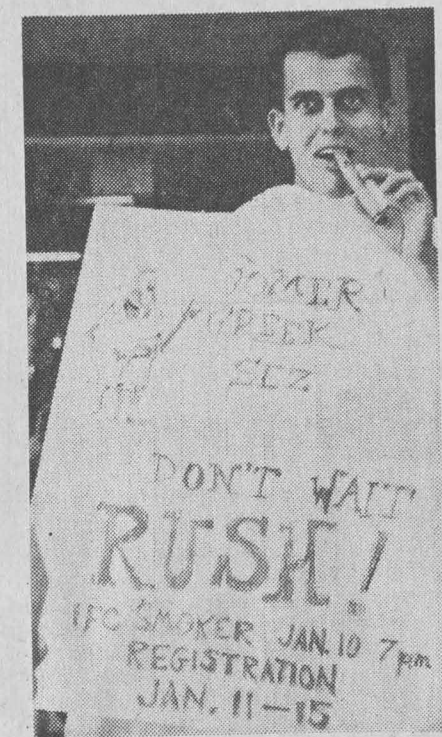 GREEK
SEZ
DON'T WAIT
RUSH!
IFC SMOKER JAN. 10 7pm
REGISTRATION
JAN. 11-15